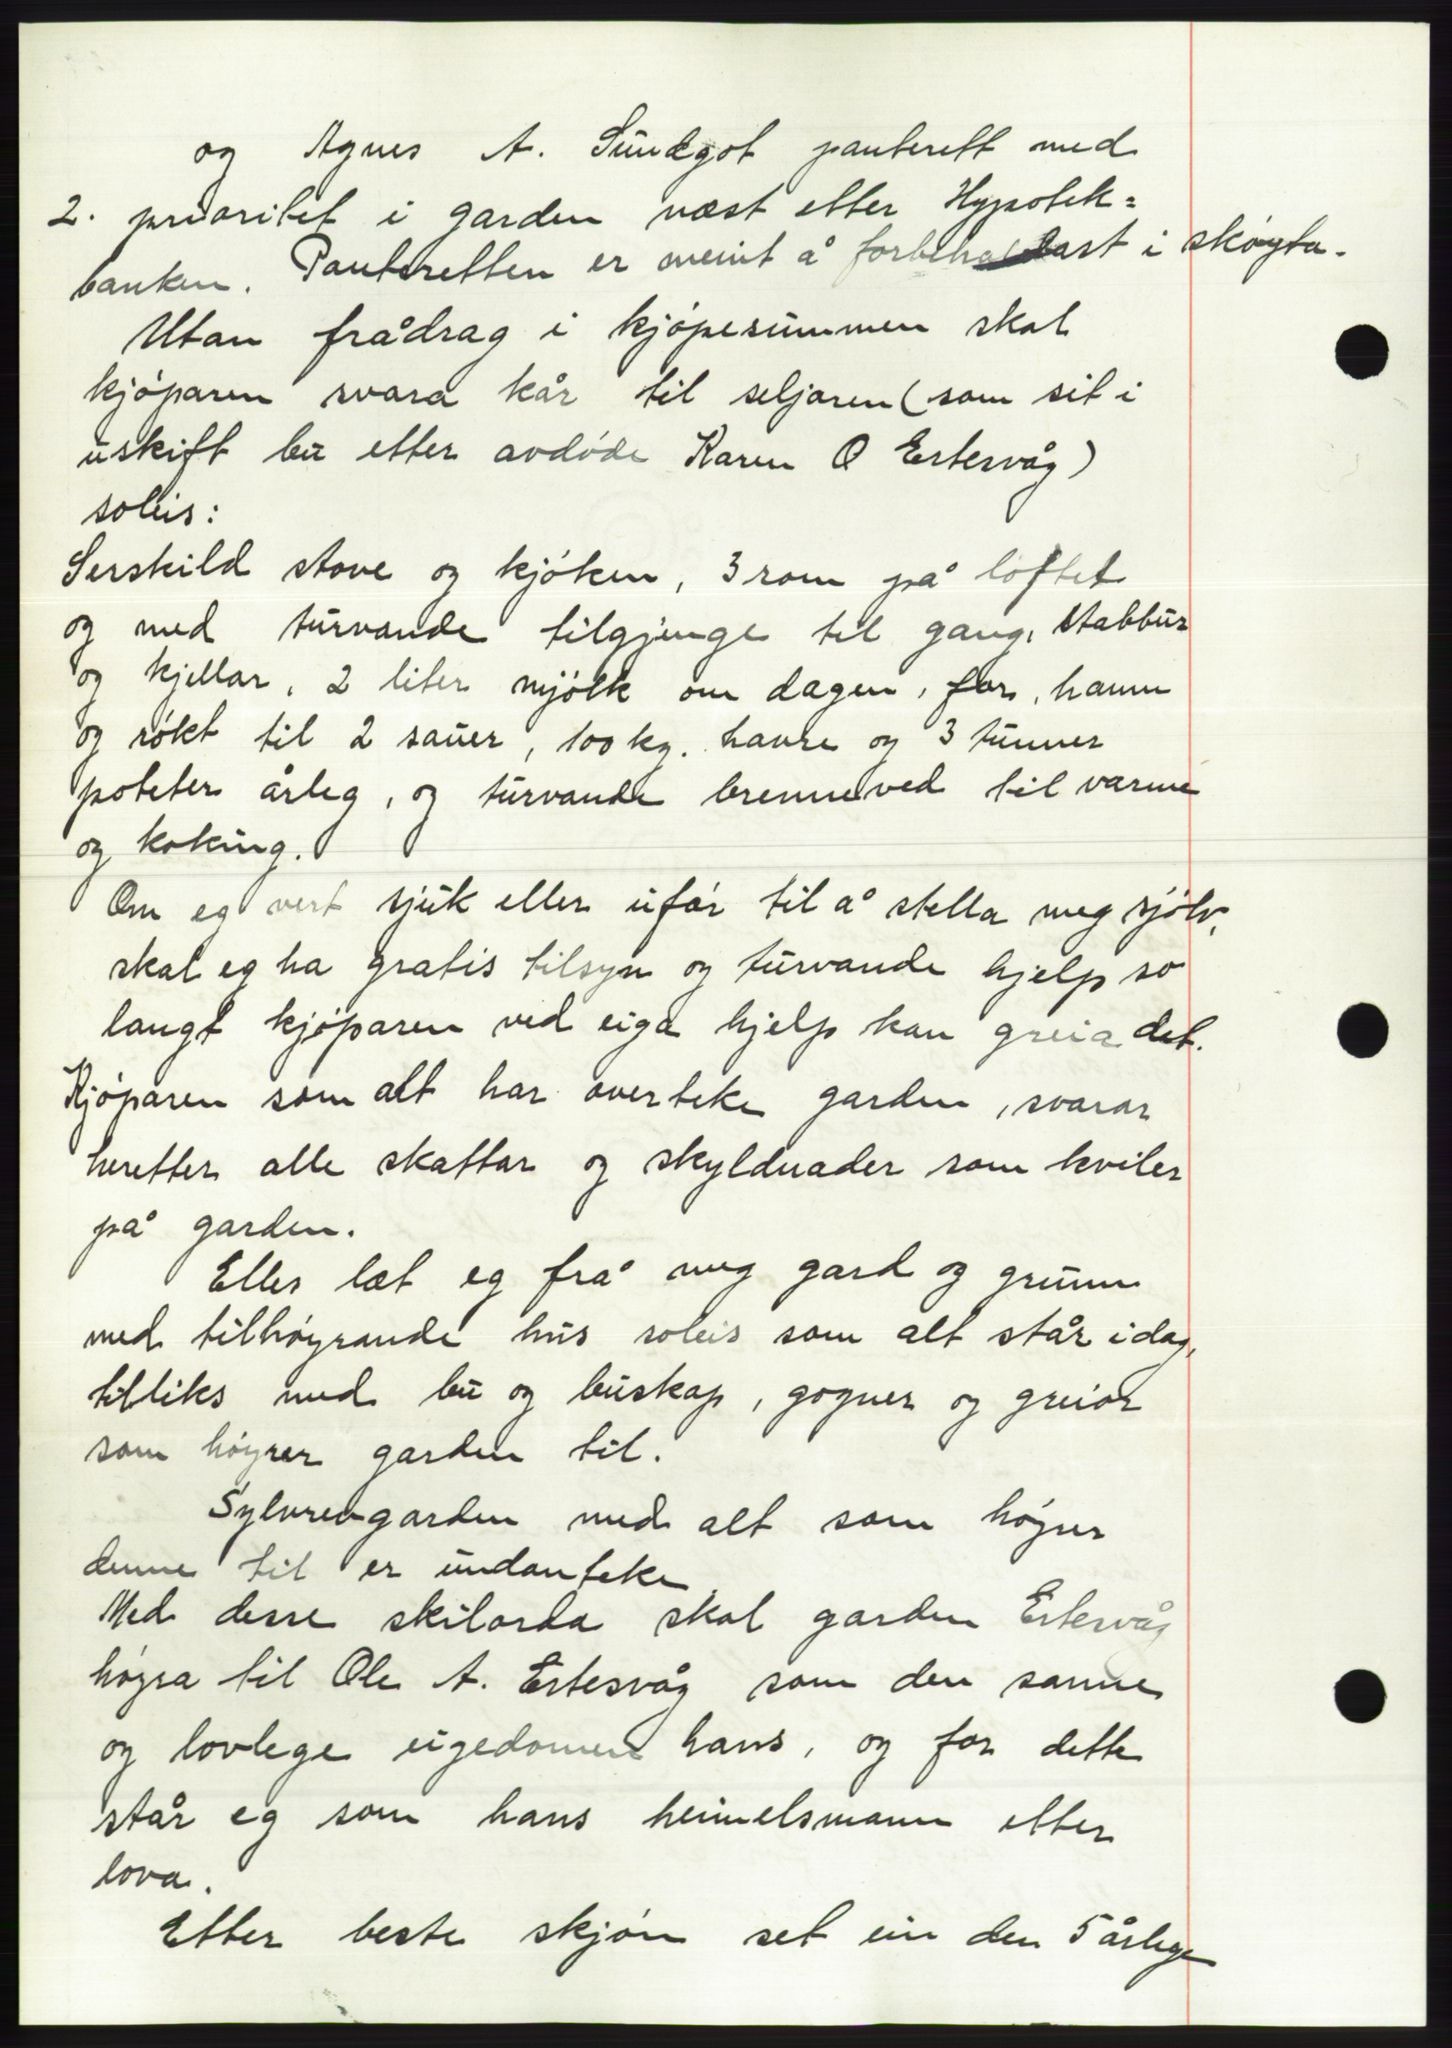 og Agnes A. Sundgot panterett med
2. prioritet i garden næst etter Hypotek=
banken. Panteretten er meint å forbehaldast i skøyta.
Utan frådrag i kjøpesummen skal
kjøparen svara kår til seljaren (som sit i
uskift bu etter avdøde Karen O Ertesvåg)
soleis:
Serskild stove og kjøken, 3 rom på loftet
og med turvande tilgjenge til gang, stabbur
og kjellar, 2 liter mjølk om dagen, for, hamn
og røkt til 2 sauer, 100 kg. havre og 3 tunner
poteter årleg, og turvande brenneved til varme
og koking.
Om eg vert sjuk eller ufør til å stella meg sjølv,
skal eg ha gratis tilsyn og turvande hjelp so
langt kjøparen ved eiga hjelp kan greia det.
Kjøparen som alt har overteke garden, svarar
heretter alle skattar og skyldnader som kviler
på garden.
Elles læt eg frå meg gard og grunn
med tilhøyrande hus soleis som alt står i dag,
tilliks med bu og buskap, gogner og greior
som høyrer garden til.
Sylvrevgarden med alt som høyrer
denne til er undanteke.
Med desse skilorda skal garden Ertesvåg
høyra til Ole A. Ertesvåg som den sanne
og lovlege eigedomen hans, og for dette
står eg som hans heimelsmann etter
lova.
Etter beste skjøn set ein den 5 årlege